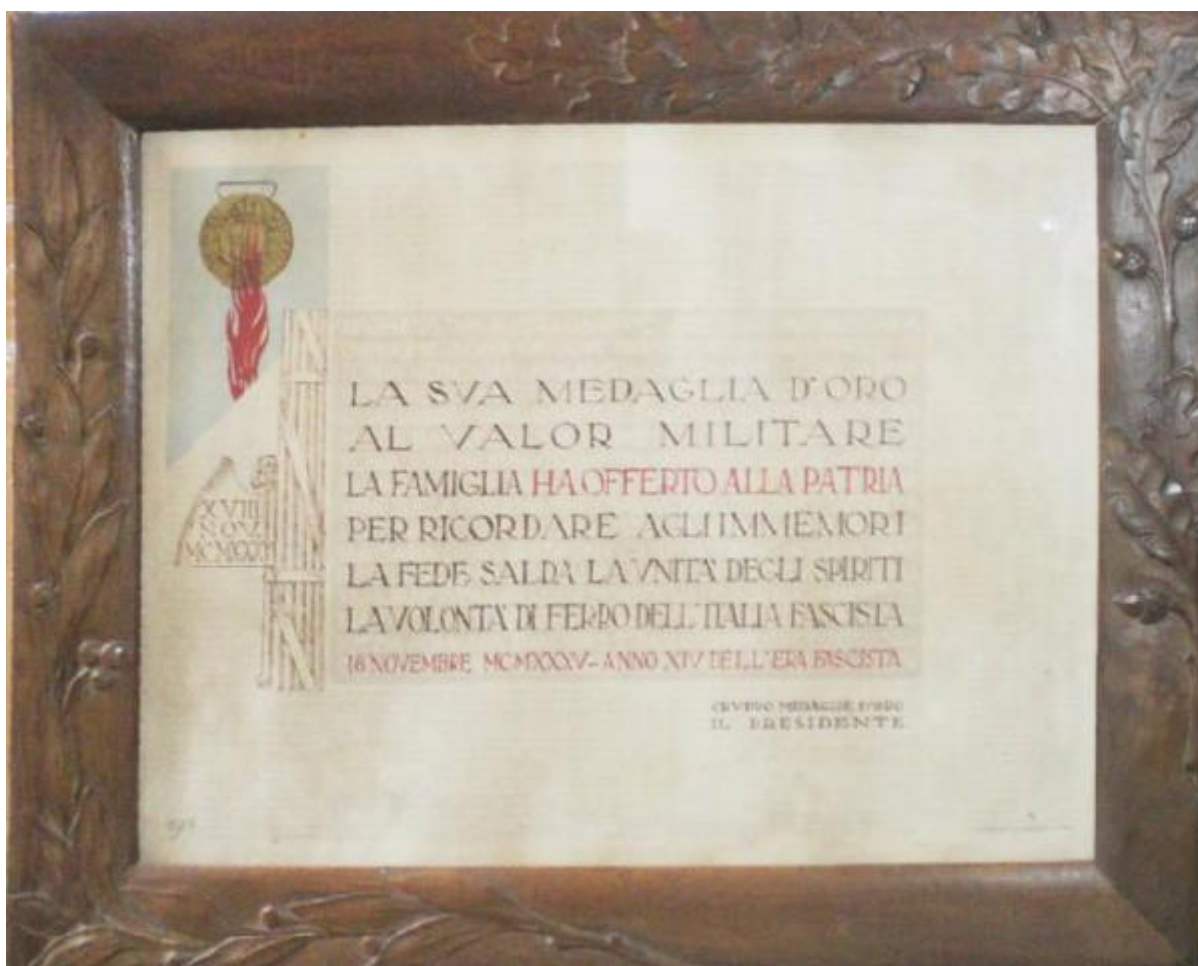 XVIII
NOV.
MCMXXXV
LA SVA MEDAGLIA D'ORO
AL VALOR MILITARE
LA FAMIGLIA HA OFFERTO ALLA PATRIA
PER RICORDARE AGLI IMMEMORI
LA FEDE SALDA LA VNITA' DEGLI SPIRITI
LA VOLONTA' DI FERRO DELL'ITALIA FASCISTA
18 NOVEMBRE MCMXXXV - ANNO XIV DELL'ERA FASCISTA
GRVPPO MEDAGLIE D'ORO
IL PRESIDENTE